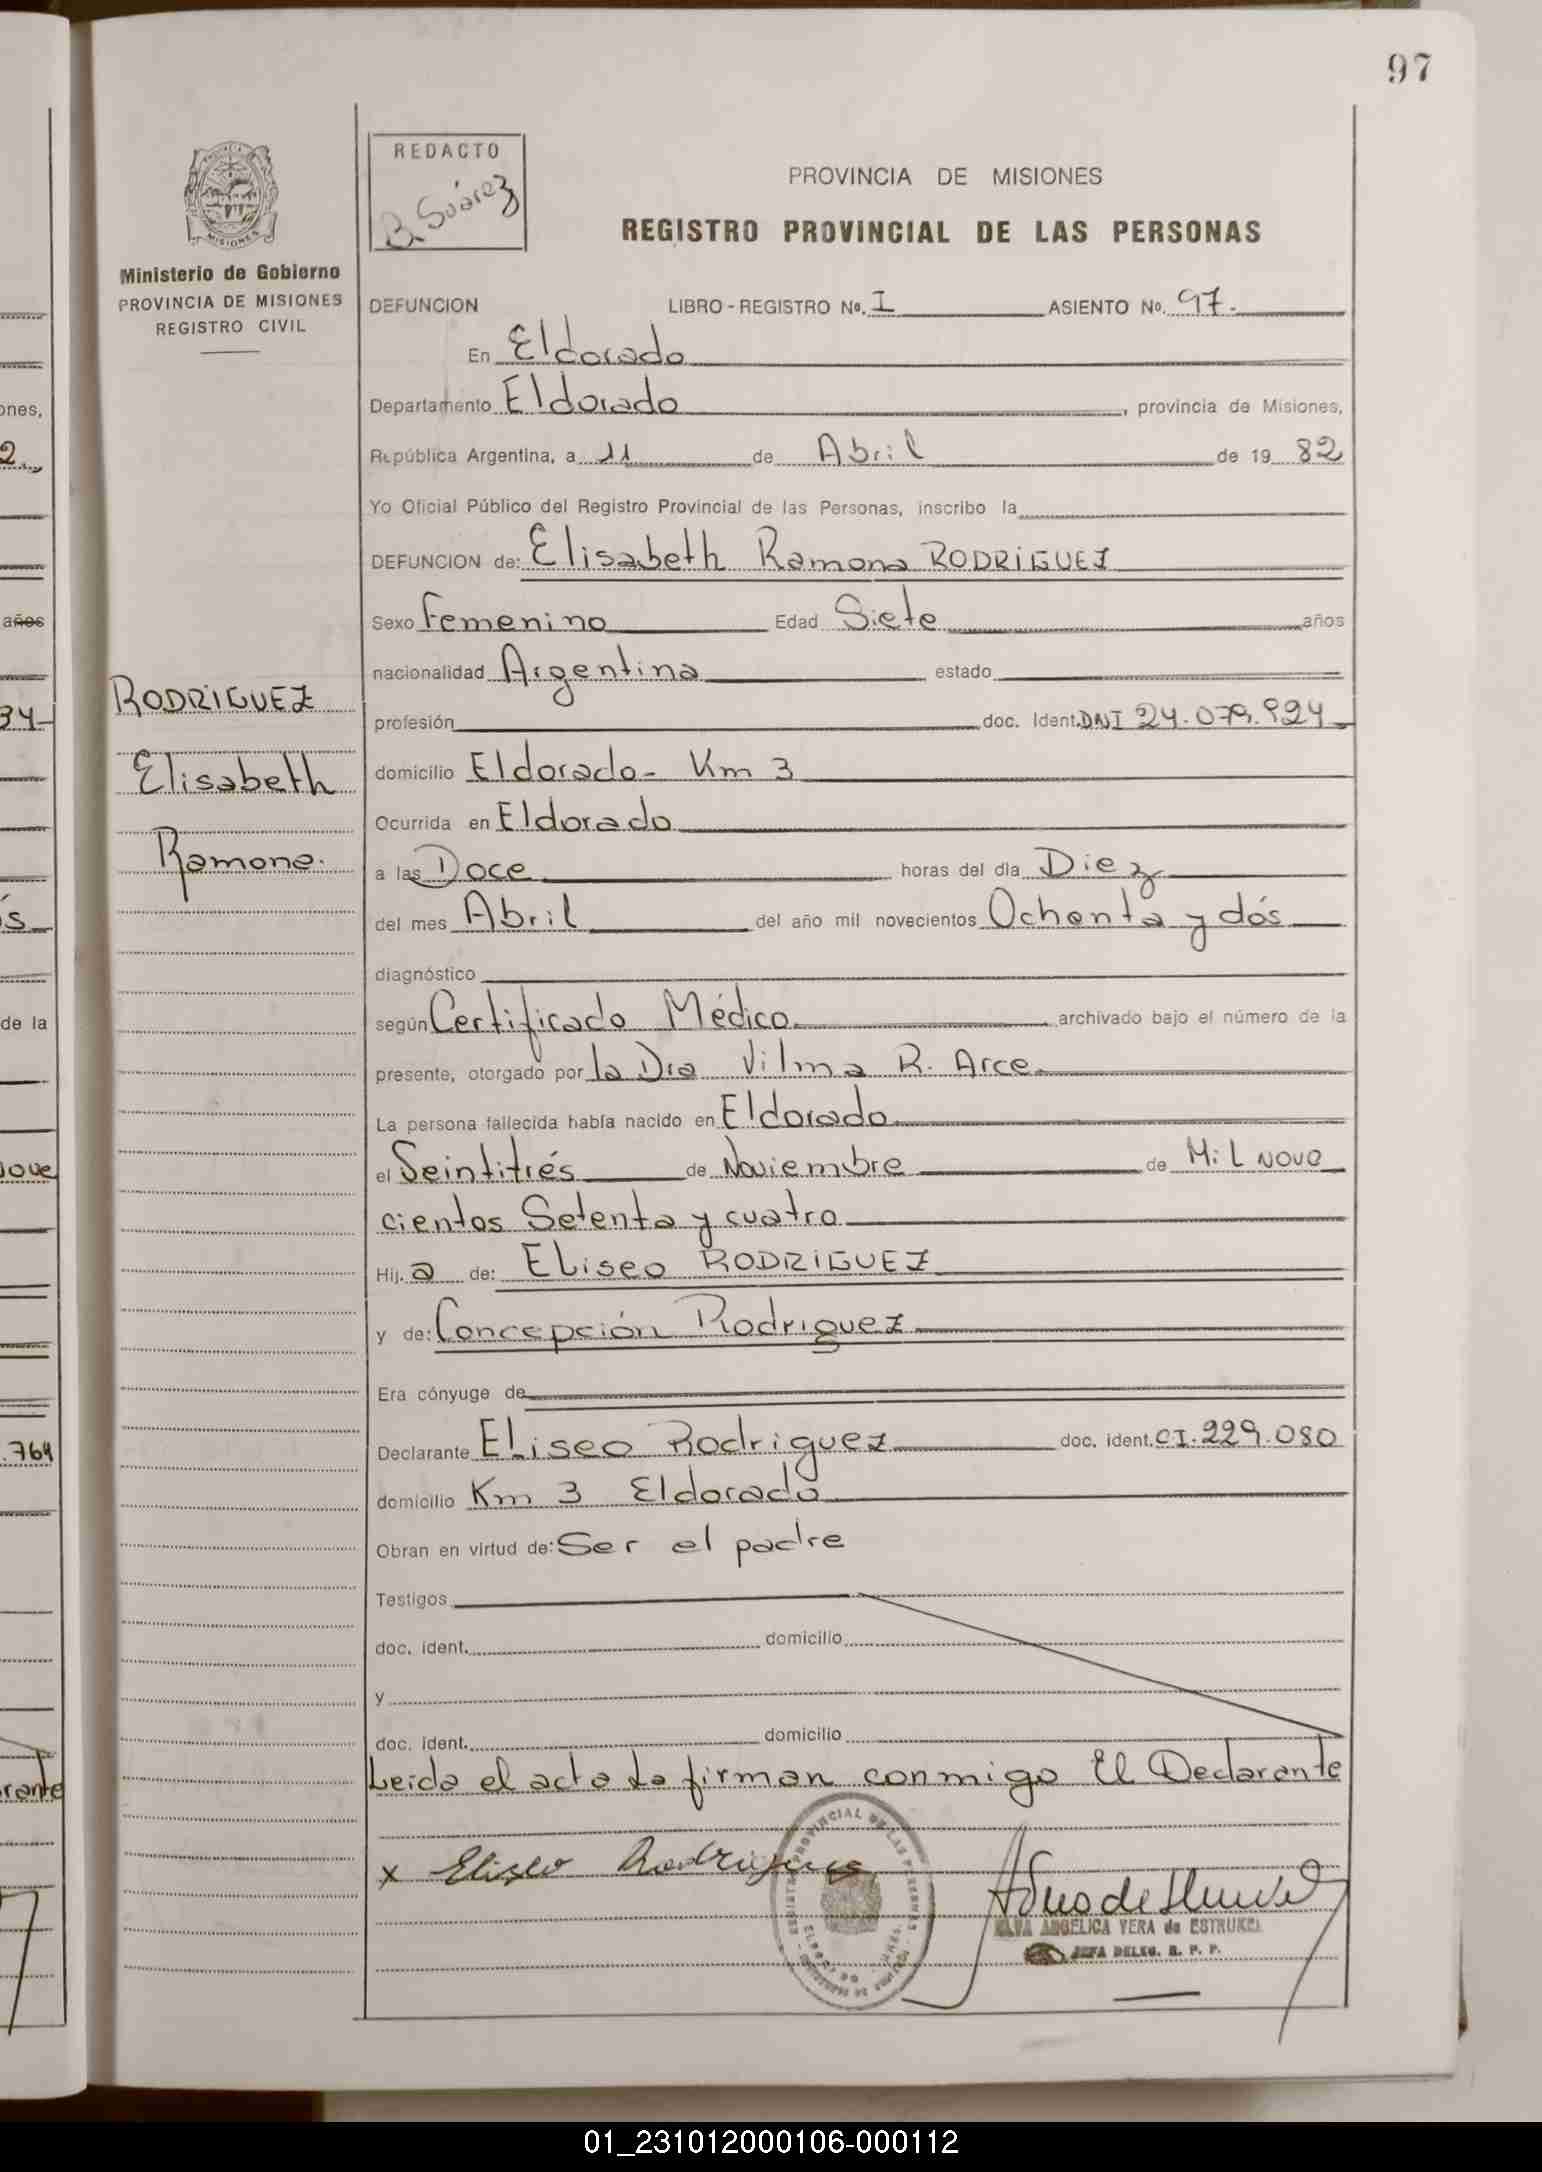 97
REDACTO
B. Suárez
PROVINCIA DE MISIONES
REGISTRO PROVINCIAL DE LAS PERSONAS
Ministerio de Gobierno
PROVINCIA DE MISIONES
REGISTRO CIVIL
DEFUNCION LIBRO - REGISTRO No. I ASIENTO No. 97.
En Eldorado
Departamento Eldorado, provincia de Misiones,
República Argentina, a 11 de Abril de 19 82
Yo Oficial Público del Registro Provincial de las Personas, inscribo la
DEFUNCION de: Elisabeth Ramona RODRIGUEZ
Sexo Femenino Edad Siete años
nacionalidad Argentina estado
RODRIGUEZ
Elisabeth
Ramona.
profesión doc. Ident. DNI 24.079.924
domicilio Eldorado - Km 3
Ocurrida en Eldorado
a las Doce horas del día Diez
del mes Abril del año mil novecientos Ochenta y dós
diagnóstico
según Certificado Médico archivado bajo el número de la
presente, otorgado por la Dra Vilma R. Arce
La persona fallecida había nacido en Eldorado
el Seintitrés de Noviembre de Mil nove
cientos Setenta y cuatro
Hij. a de: Eliseo RODRIGUEZ
y de: Concepción Rodriguez
Era cónyuge de
Declarante Eliseo Rodriguez doc. ident. CI. 229.080
domicilio Km 3 Eldorado
Obran en virtud de: Ser el padre
Testigos
doc. ident. domicilio
y
doc. ident. domicilio
Leida el acta la firman conmigo El Declarante
x Eliseo Rodrigues
ANGELICA VERA de ESTRUKEL
JEFA DELEG. R. P. P.
ones,
2
años
34
s
de la
nove
.764
rante
01_231012000106-000112